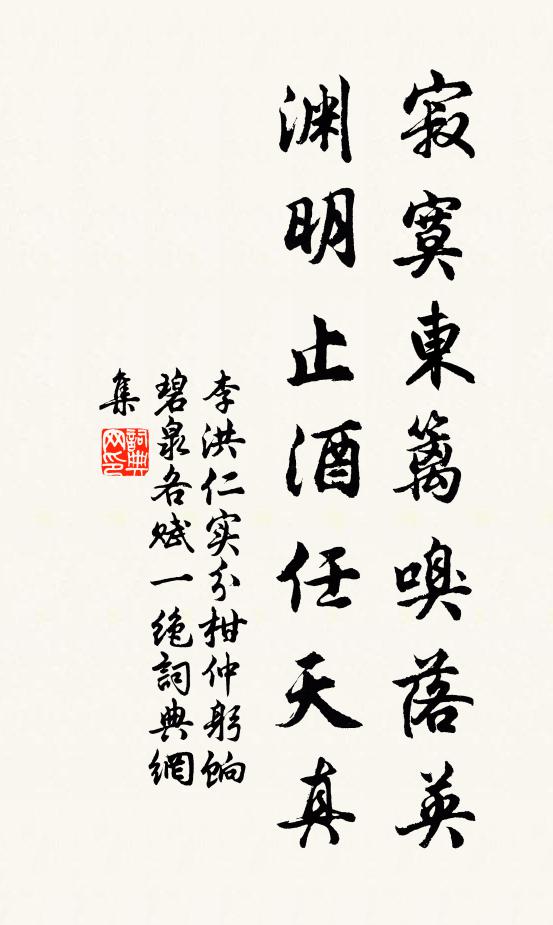 寂寞東籬嗅落英
淵明止酒任天真
李洪仁实分柑仲躬餉
碧泉各赋一绝詞典網
集
詞典
网印